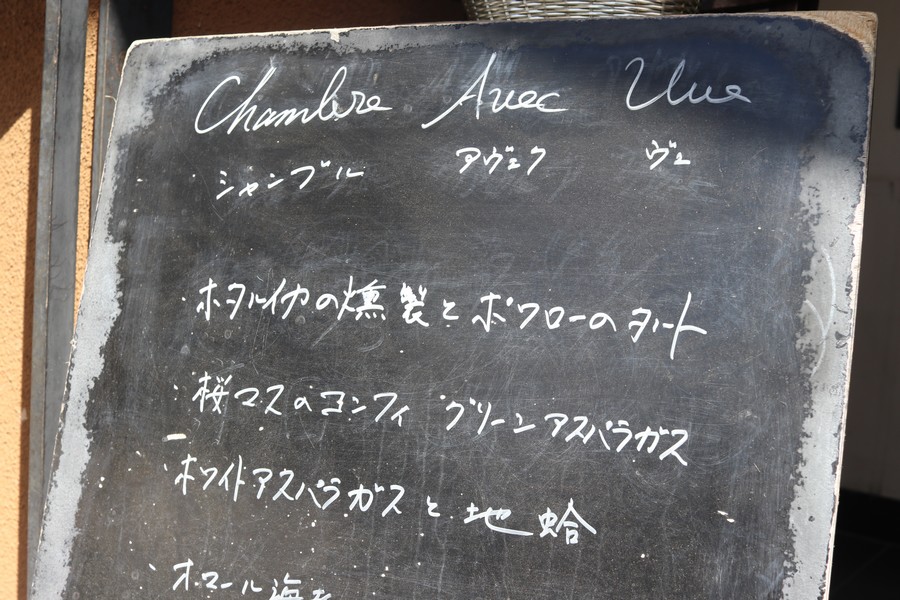 Chambre Avec Vue
シャンブル アヴェク ヴュ
・ホタルイカの燻製とポワローのタルト
・桜マスのコンフィ グリーンアスパラガス
・ホワイトアスパラガスと地蛤
・オマール海老